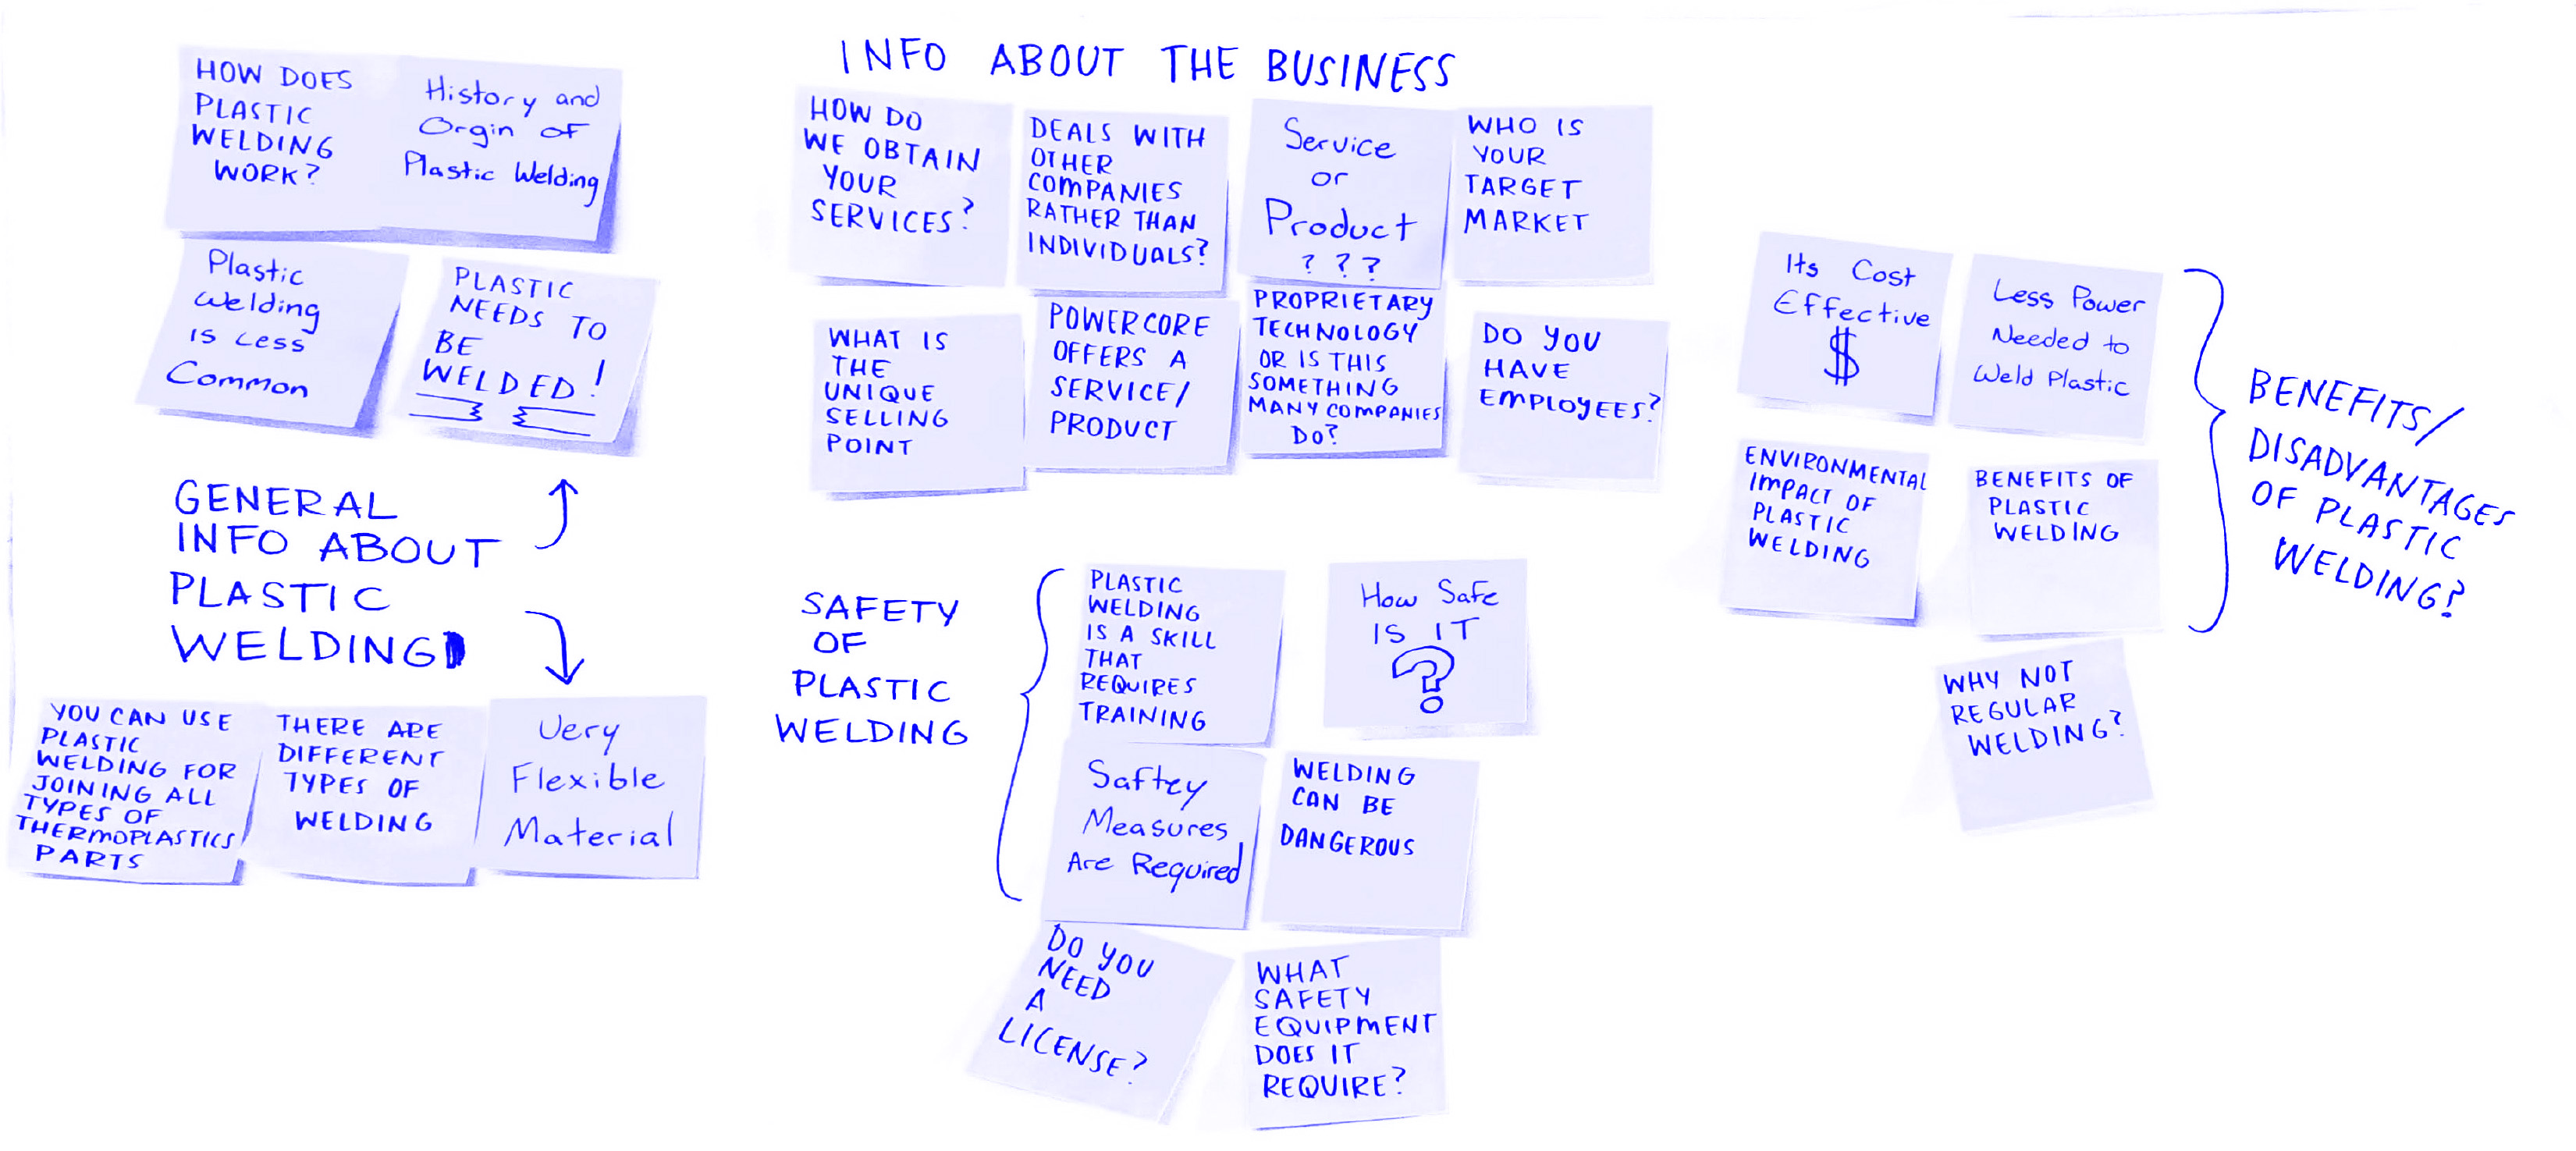 HOW DOES
PLASTIC
WELDING
WORK?
History and
Orgin of
Plastic Welding
Plastic
Welding
is Less
Common
PLASTIC
NEEDS TO
BE
WELDED!
GENERAL
INFO ABOUT
PLASTIC
WELDING
YOU CAN USE
PLASTIC
WELDING FOR
JOINING ALL
TYPES OF
THERMOPLASTICS
PARTS
THERE ARE
DIFFERENT
TYPES OF
WELDING
Very
Flexible
Material
INFO ABOUT THE BUSINESS
HOW DO
WE OBTAIN
YOUR
SERVICES?
DEALS WITH
OTHER
COMPANIES
RATHER THAN
INDIVIDUALS?
Service
or
Product
???
WHO IS
YOUR
TARGET
MARKET
WHAT IS
THE
UNIQUE
SELLING
POINT
POWERCORE
OFFERS A
SERVICE/
PRODUCT
PROPRIETARY
TECHNOLOGY
OR IS THIS
SOMETHING
MANY COMPANIES
DO?
DO YOU
HAVE
EMPLOYEES?
SAFETY
OF
PLASTIC
WELDING
PLASTIC
WELDING
IS A SKILL
THAT
REQUIRES
TRAINING
How Safe
IS IT
?
Saftey
Measures
Are Required
WELDING
CAN BE
DANGEROUS
DO YOU
NEED
A
LICENSE?
WHAT
SAFETY
EQUIPMENT
DOES IT
REQUIRE?
Its Cost
Effective
$
Less Power
Needed to
Weld Plastic
ENVIRONMENTAL
IMPACT OF
PLASTIC
WELDING
BENEFITS OF
PLASTIC
WELDING
WHY NOT
REGULAR
WELDING?
BENEFITS/
DISADVANTAGES
OF PLASTIC
WELDING?